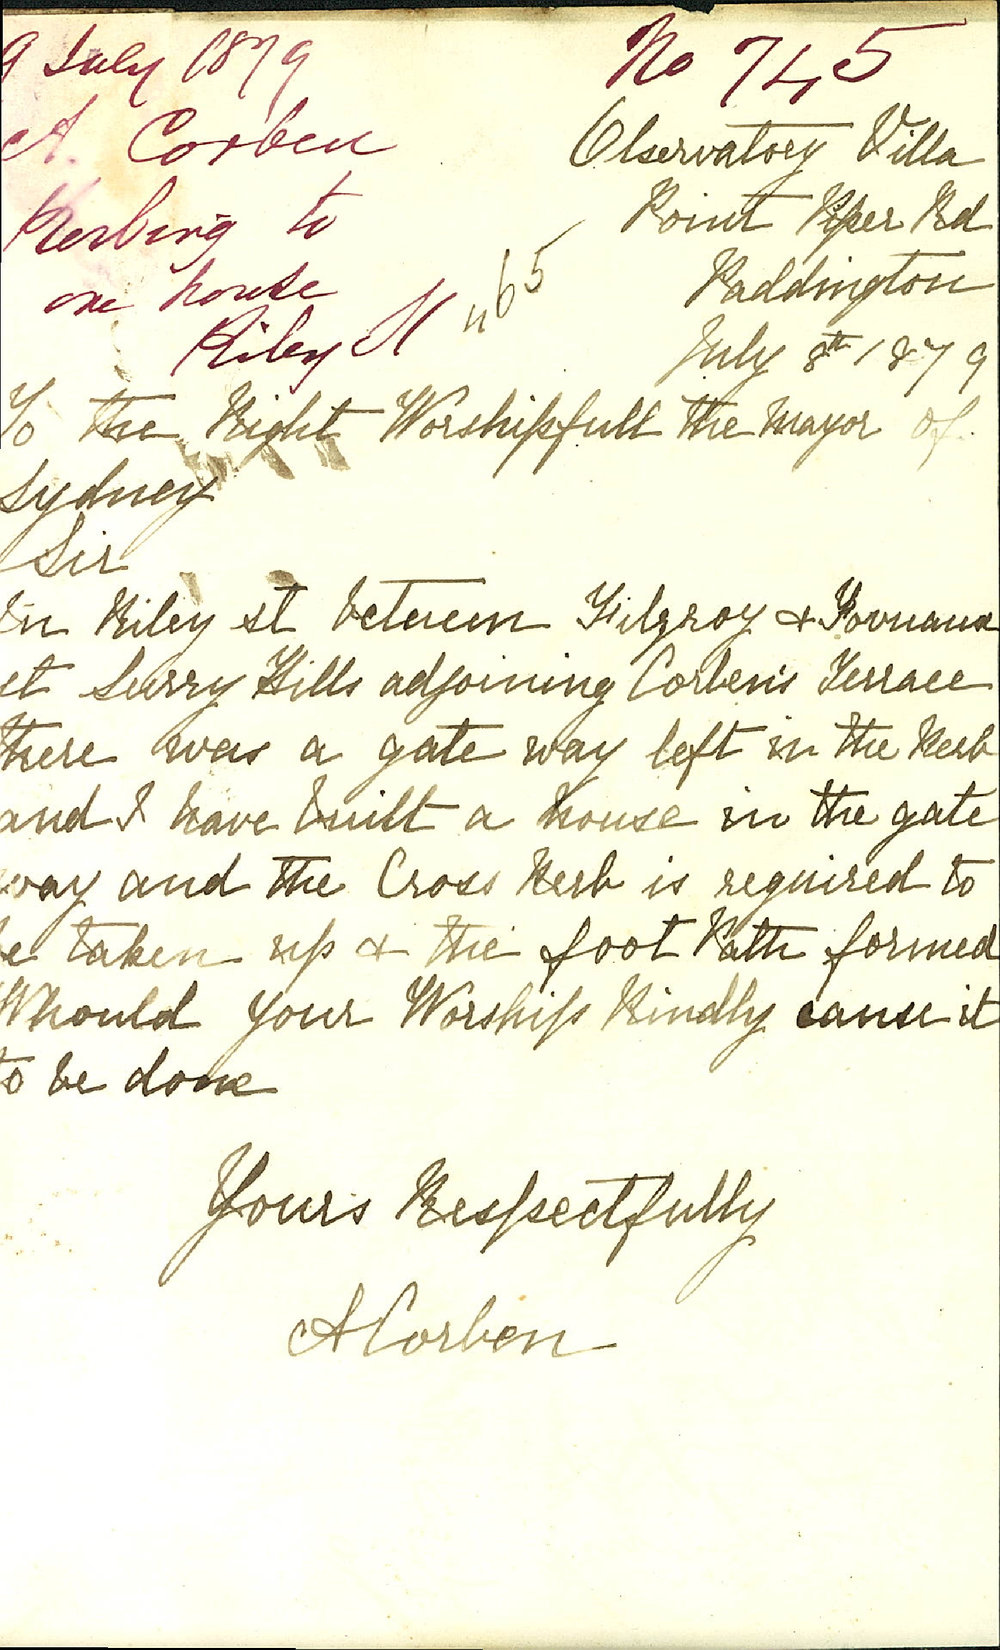 9 July 1879
A. Corben
Kerbing to
one house
Riley St
No 745
Observatory Villa
Point Piper Rd
Paddington
July 8th 1879
"65
To the Right Worshipfull the Mayor of
Sydney
Sir
In Riley st between Kilgroy &
st Surry Hills adjoining Corben's Terrace
there was a gate way left in the Kerb
and I have built a house in the gate
way and the Cross Kerb is required to
be taken up & the foot Path formed
Whould your Worship Kindly cause it
to be done
Yours Respectfully
A Corben